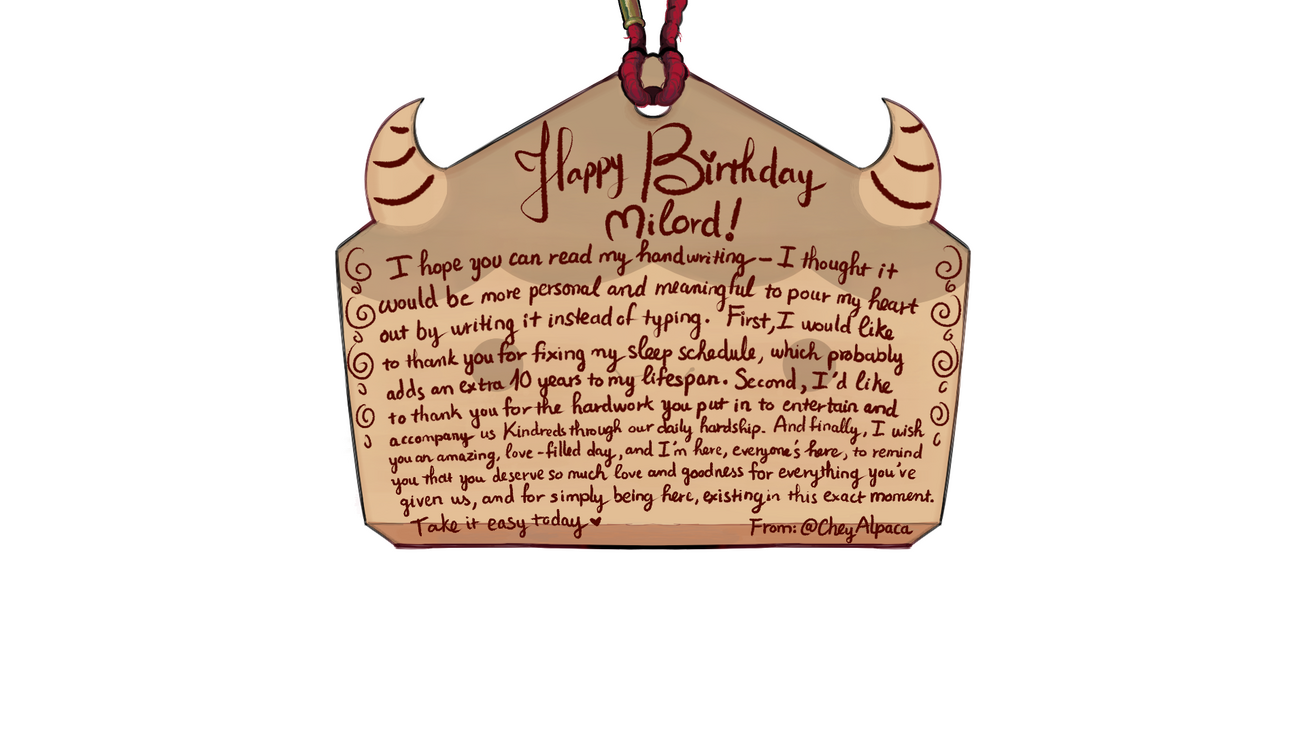 Happy Birthday
Milord!
I hope you can read my handwriting - I thought it
would be more personal and meaningful to pour my heart
out by writing it instead of typing. First, I would like
to thank you for fixing my sleep schedule, which probably
adds an extra 10 years to my lifespan. Second, I'd like
to thank you for the hardwork you put in to entertain and
accompany us Kindreds through our daily hardship. And finally, I wish
you an amazing, love-filled day, and I'm here, everyone's here, to remind
you that you deserve so much love and goodness for everything you've
given us, and for simply being here, existing in this exact moment.
Take it easy today ♥ From: @CheyAlpaca